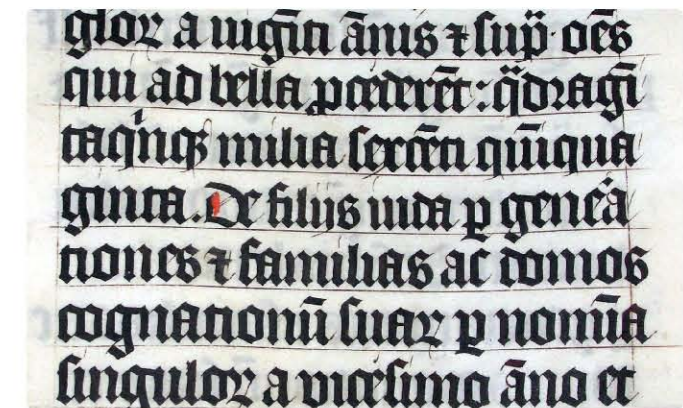 gloꝝ a uiginti ānis ⁊ sup̄· oēs
qui ad bella ꝓcederēt : q̈dragī
taqͥnqꝫ milia sexcēti qūiqua
ginta. De filijs iuda ꝑ gene͛a
tiones ⁊ familias ac domos
cognationū suaꝝ ꝑ nomīa
singuloꝝ a vicesimo āno et